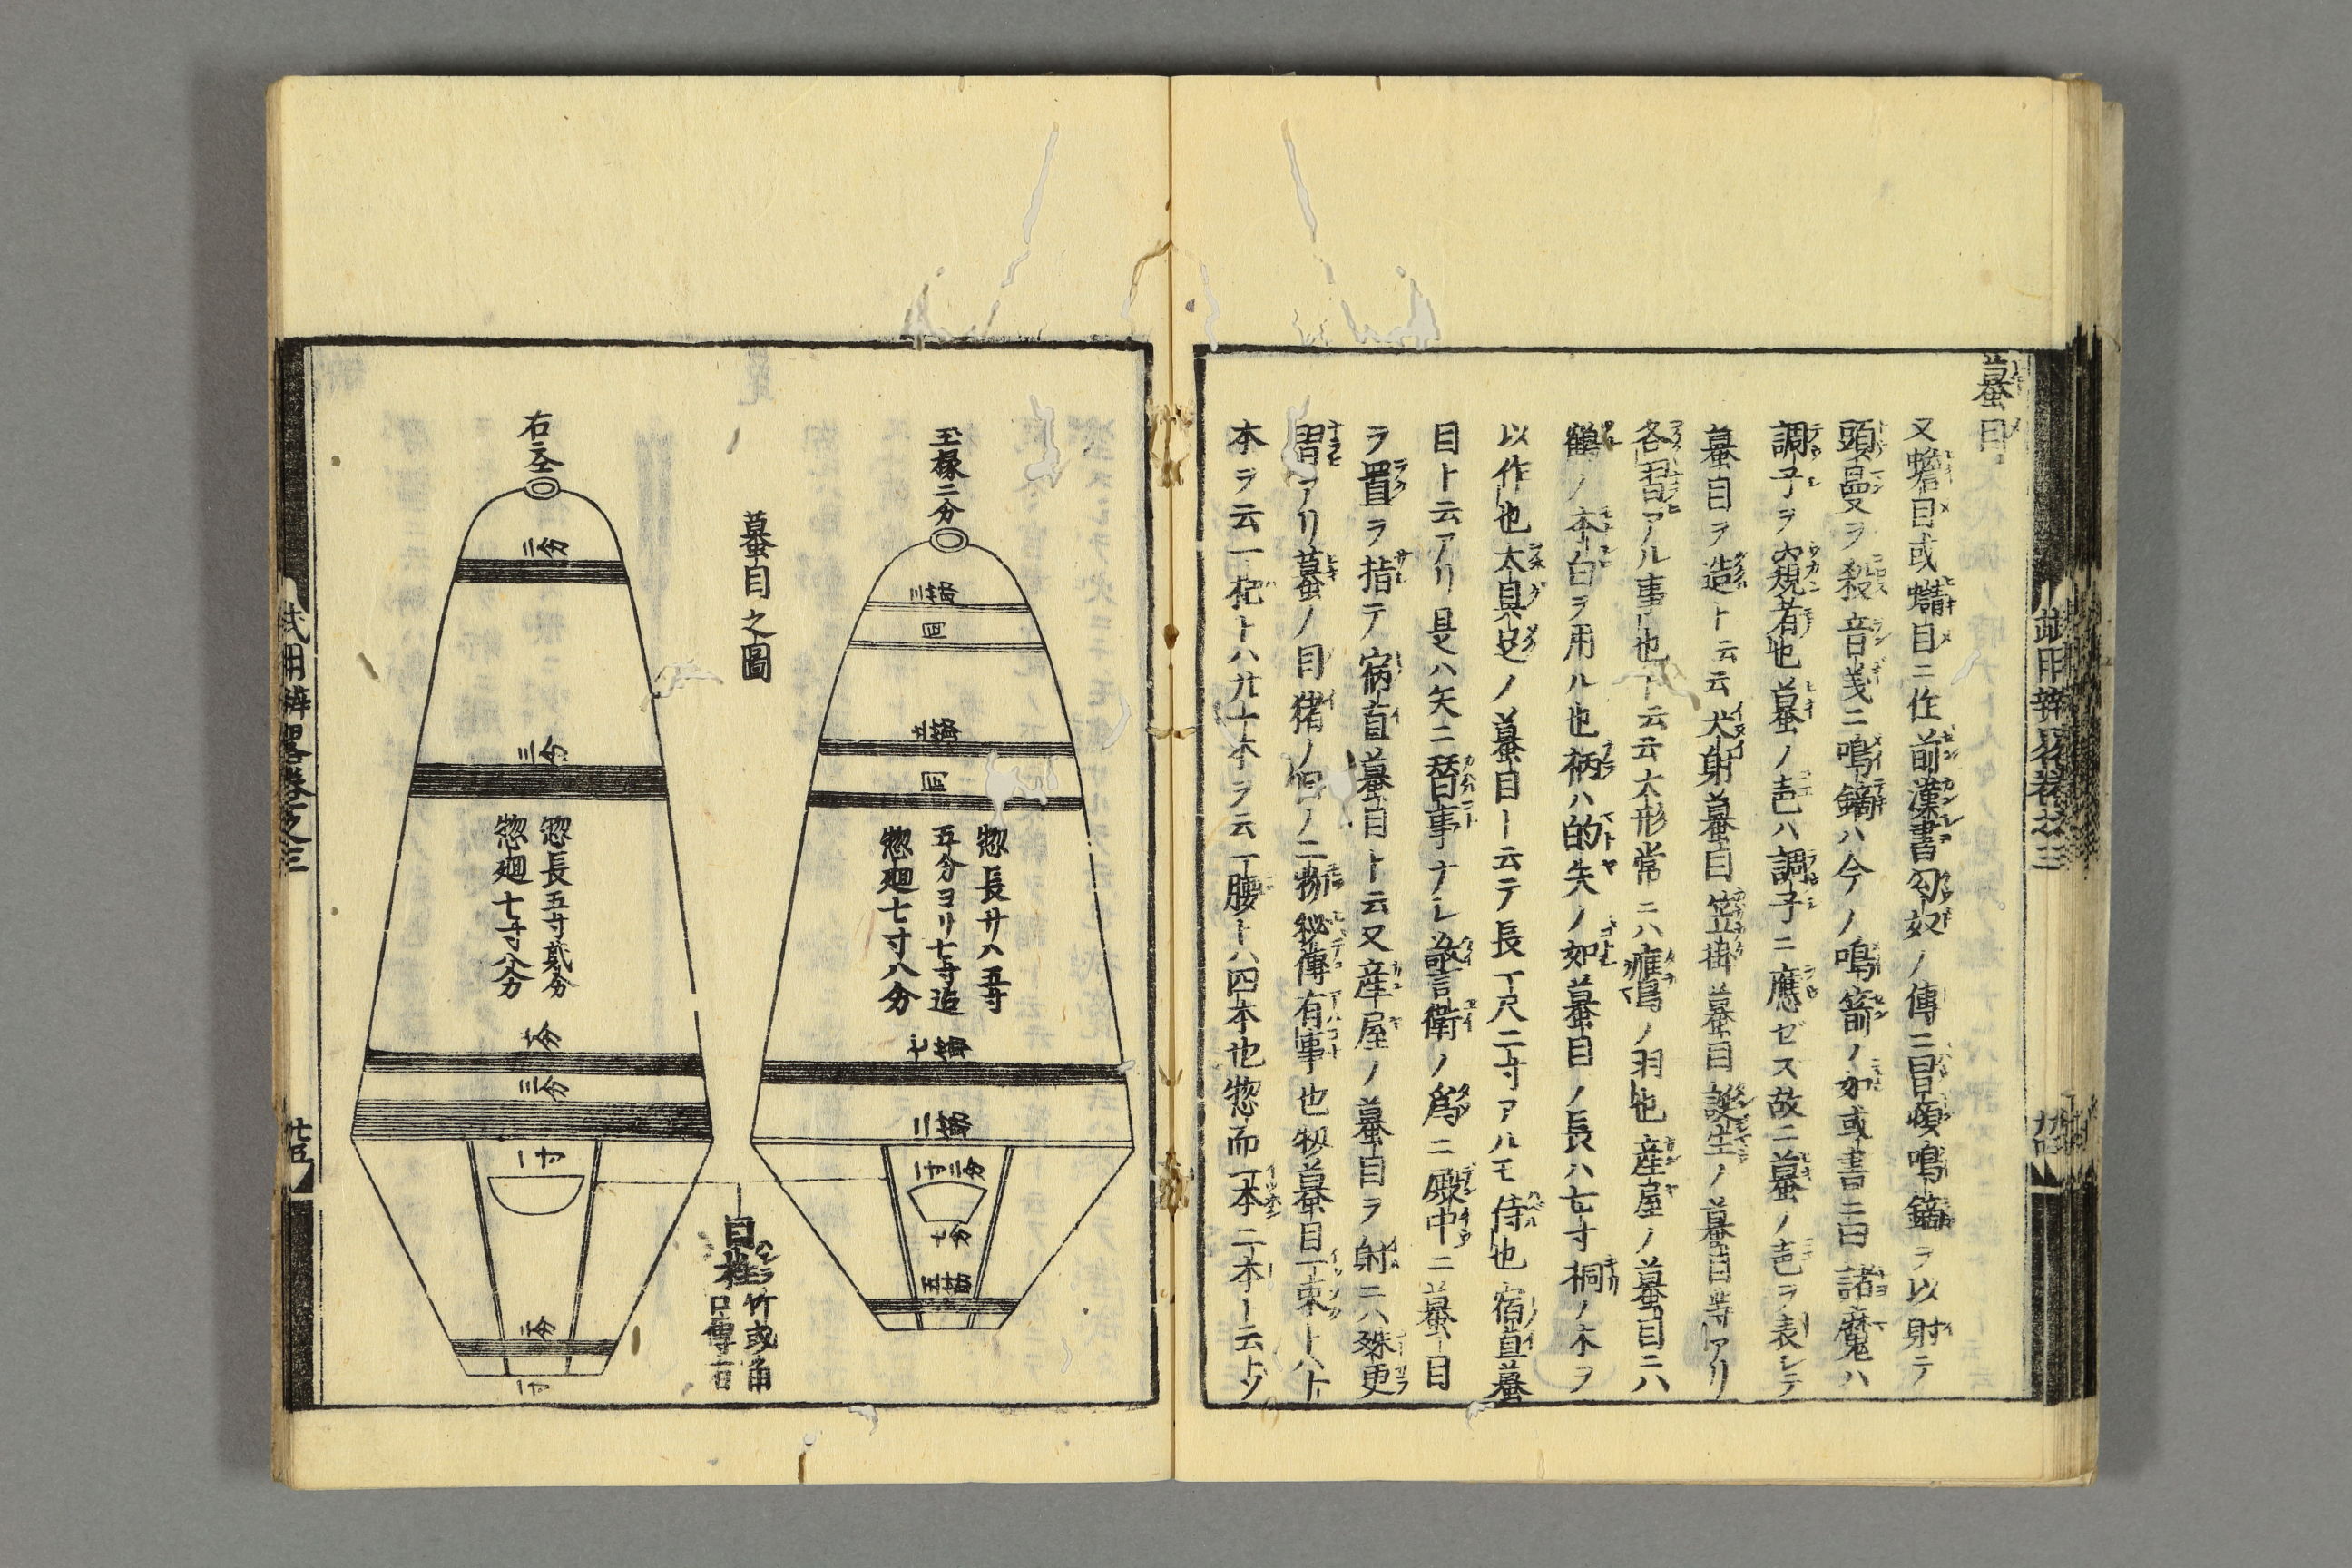 蟇目
又蟾目或蟕目ニ作前漢書匈奴ノ傳ニ曰冒頓鳴鏑ヲ以射テ
頭曼ヲ殺音義ニ鳴鏑ハ今ノ鳴箭ノ如或書ニ曰諸魔ハ
調子ヲ窺者也蟇ノ声ハ調子ニ應ゼス故ニ蟇ノ声ヲ表シテ
蟇目ヲ造ト云云犬射蟇目笠掛蟇目誕生ノ蟇目等アリ
各習アル事也ト云云大形常ニハ ノ羽也産屋ノ蟇目ニハ
鶴ノ本白ヲ用ル也柄ハ的矢ノ如蟇目ノ長ハ七寸桐ノ木ヲ
以作也太具足ノ蟇目ト云テ長一尺二寸アルモ侍也宿直蟇
目ト云アリ是ハ矢ニ替事ナレ警衛ノ爲ニ殿中ニ蟇目
ヲ置ヲ指テ宿直蟇目ト云又産屋ノ蟇目ヲ射ニハ殊更
習アリ蟇ノ目猪ノ目ノ二物秘傳有事也扨蟇目一束トハ
本ヲ云一杷トハ九十本ヲ云一腰トハ四本也惣而一本二本ト云
武用辨畧卷之三
玉椽二分
三分
四
四
惣長サハ五寸
五分ヨリ七寸迄
惣廻七寸八分
一寸二分
七分
蟇目之圖
目柱 竹或角
口傳有
右二仝
二分
三分
惣長五寸貳分
惣廻七寸八分
三分
一寸
二分
一寸
武用辨畧卷之三